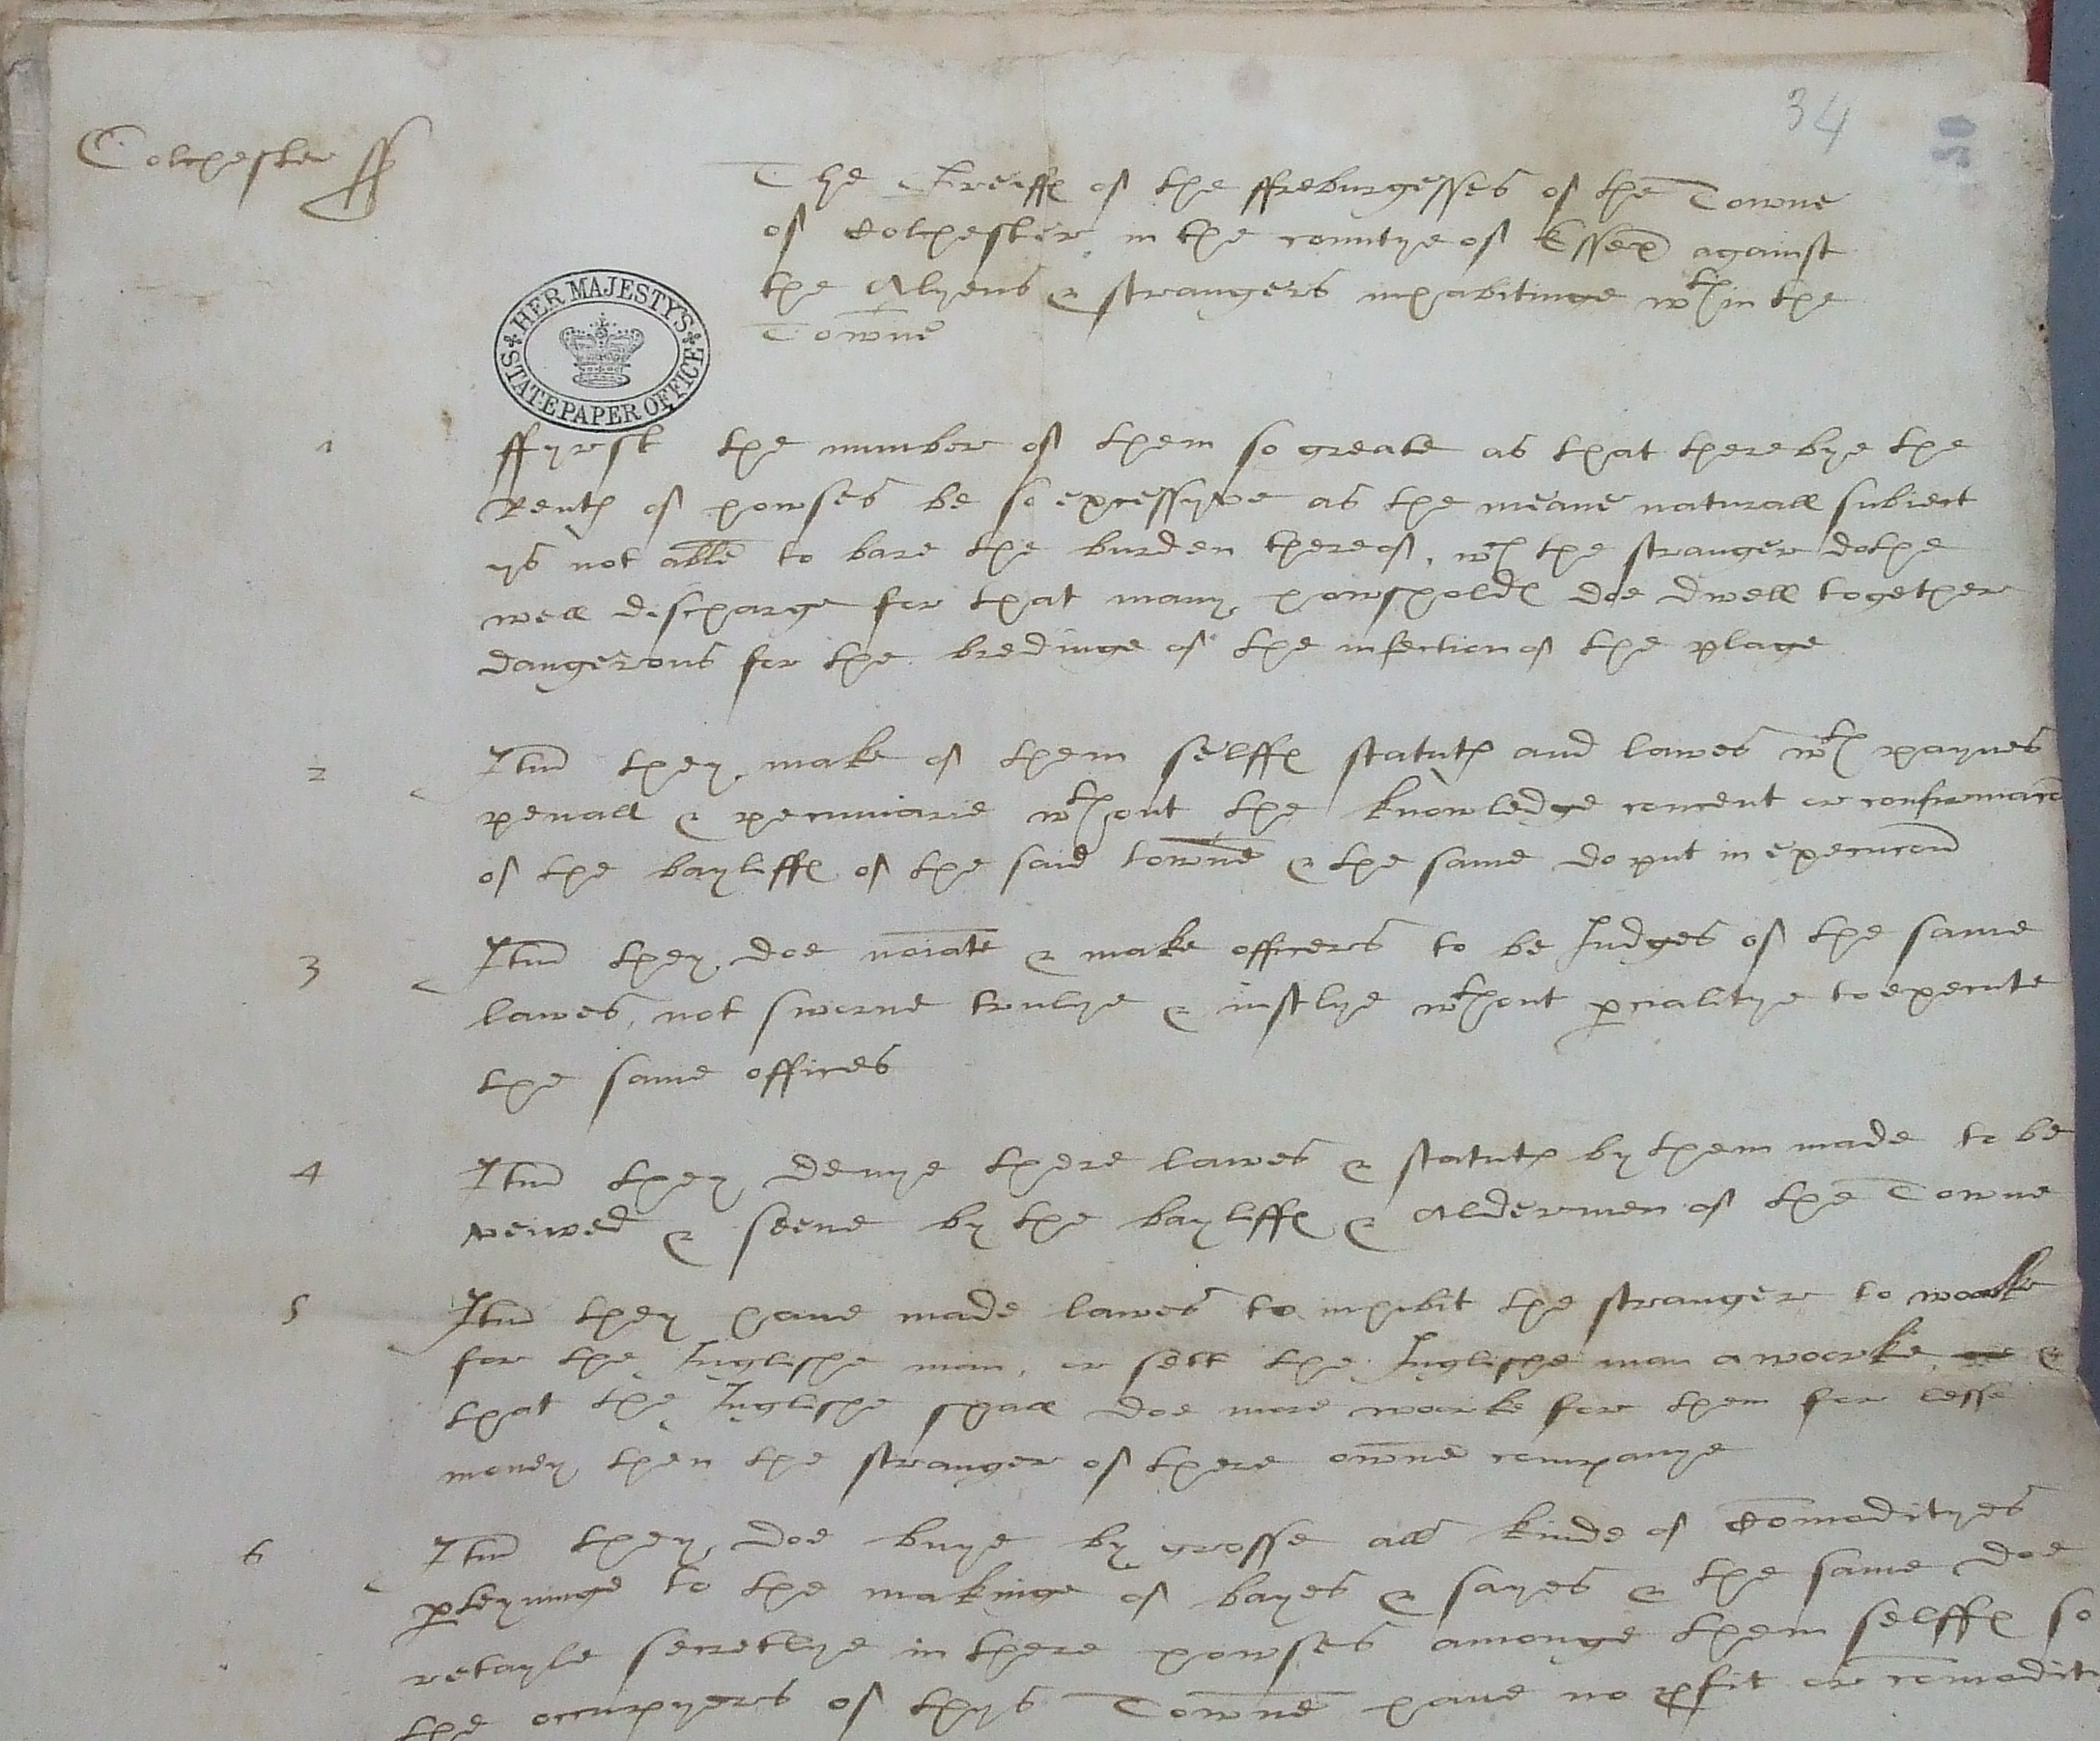 34
20
Colchester ss
The Greiffs of the ffreburgesses of the Towne
of Colchester in the countye of Essex against
the Alyens & strangers inhabitinge wthin the
Towne
HER MAJESTY'S STATE PAPER OFFICE
1 ffyrst the number of them so greate as that therebye the
Rentes of howses be so excessyve as the meane naturall subiect
ys not able to bare the burden thereof, wch the stranger dothe
well discharge for that many howsholdes doe dwell together
dangerous for the bredinge of the infection of the plage
2 Itm they make of them selffes statutes and lawes wth paynes
penall & pecuniarie wthout the knowledge concent or confirmacon
of the bayliffes of the said towne & the same do put in execucon
3 Itm they doe noiate & make officers to be Judges of the same
lawes, not sworne trulye & iustlye wthout pcialitye to execute
the same offices
4 Itm they denye there lawes & statutes by them made to be
veiwed & seene by the bayliffes & Aldermen of the Towne
5 Itm they have made lawes to inhibit the stranger to woorke
for the Inglishe man, or sett the Inglishe man a woorke &
that the Inglishe shall doe more woorke for them for lesse
money then the stranger of there owne companye
6 Itm they doe buye by grosse all kinde of Comodityes
pteyninge to the makinge of bayes & sayes & the same doe
retayle secretlye in there howses amonge them selffes so
the occupyers of thys Towne have no pfit or comodity